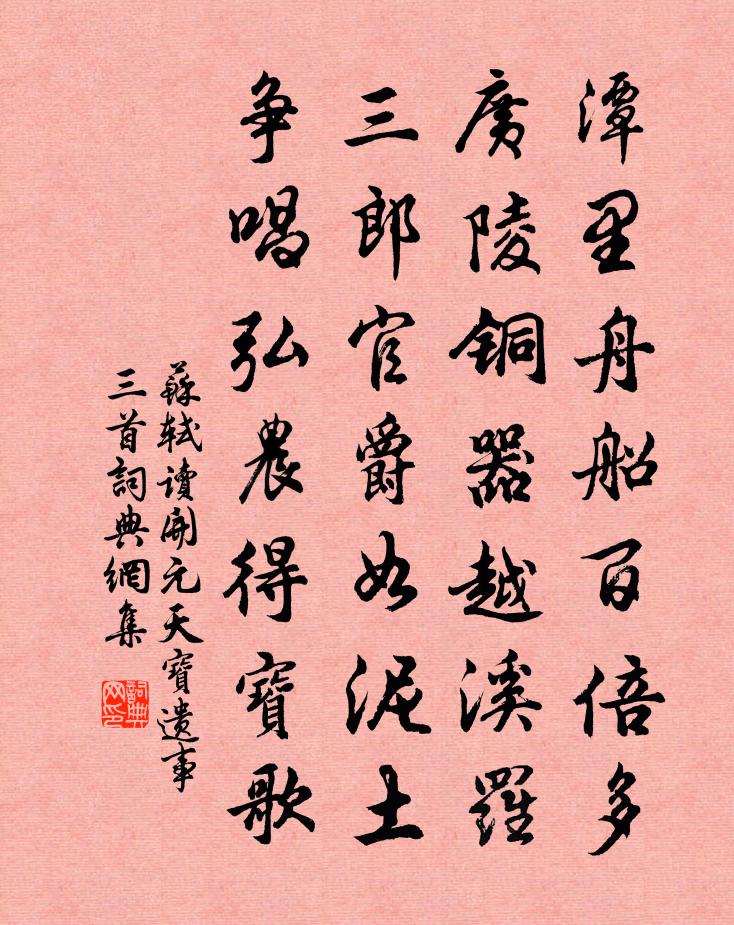 潭里舟船百倍多
廣陵銅器越溪羅
三郎官爵如泥土
争唱弘農得寶歌
蘇軾讀開元天寶遺事
三首詞典網集
詞典网印